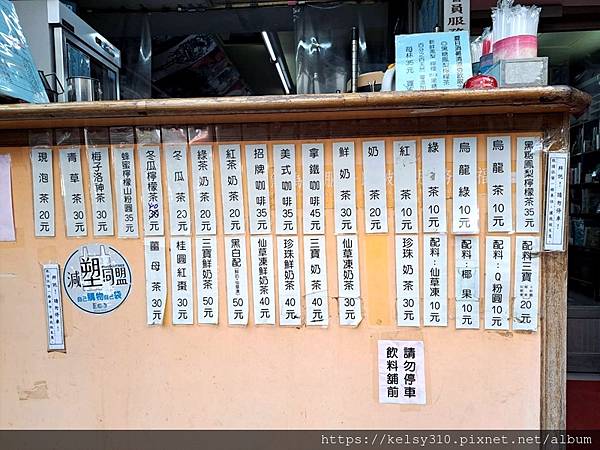 會員服務
每杯35元
黑糖鳳梨檸檬茶35元
烏龍茶10元
烏龍綠10元
綠茶10元
紅茶10元
奶茶20元
鮮奶茶30元
拿鐵咖啡45元
美式咖啡35元
招牌咖啡35元
紅茶奶茶20元
綠茶奶茶20元
冬瓜茶20元
冬瓜檸檬茶30元
蜂蜜檸檬山粉圓35元
梅子洛神茶30元
青草茶30元
現泡茶20元
配料三寶20元
配料:Q粉圓10元
配料:椰果10元
配料:仙草凍10元
珍珠奶茶30元
仙草凍奶茶30元
三寶奶茶40元
珍珠鮮奶茶40元
仙草凍鮮奶茶40元
黑白配50元
三寶鮮奶茶50元
桂圓紅棗30元
薑母茶30元
減塑同盟
自己購物自己袋
請勿停車
飲料舖前
https://kelsy310.pixnet.net/album